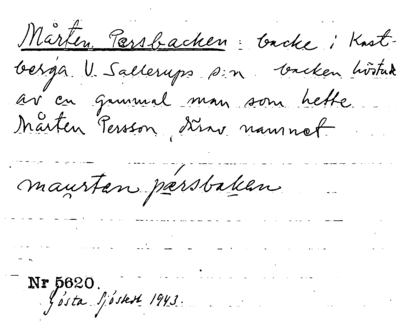 Mårten Persbacken: backe i Kast-
berga V. Sallerups s:n. backen
av en gammal man som hette
Mårten Persson, därav namnet
maurten pärsbaken
Nr 5620.
Gösta Sjöstedt 1943.